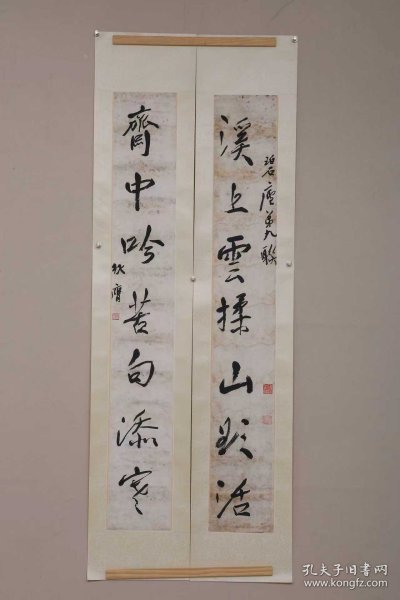 溪上雲揉山影活
碧廬第九聯
齋中吟苦句添寒
孔夫子旧书网
www.kongfz.com